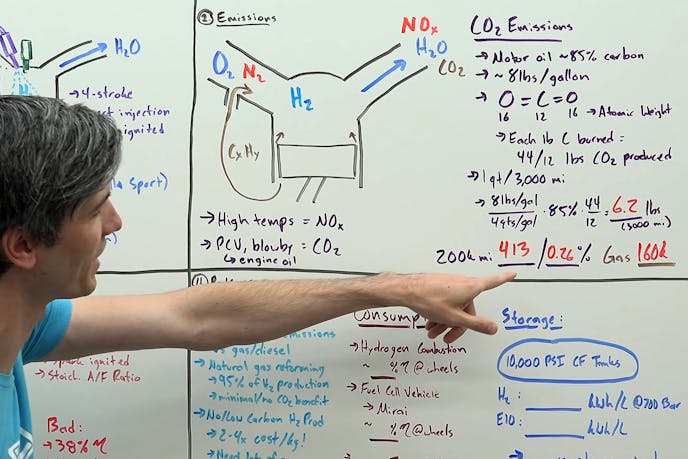 ② Emissions
H₂O
→ 4-stroke
injection
ignited
Sport)
O₂
N₂
H₂
CxHy
NOx
H₂O
CO₂
→ High temps = NOx
→ PCV, blowby = CO₂
↳ engine oil
CO₂ Emissions
→ Motor oil ~85% carbon
→ ~8lbs/gallon
→ O=C=O → Atomic Weight
16 12 16
→ Each lb C burned =
44/12 lbs CO₂ produced
→ 1 qt/3,000 mi
→ 8lbs/gal / 4qts/gal · 85% · 44/12 = 6.2 lbs
(3000 mi)
200k mi 413 / 0.26% Gas 160k
ignited
→ Stoich. A/F Ratio
Bad:
→ 38% η
gas/diesel
→ Natural gas reforming
→ 95% of H₂ production
→ minimal/no CO₂ benefit
→ No/Low Carbon H₂ Prod
→ 2-4x cost/kg!
→ Need lots of
→ Hydrogen Combustion
~ __% η @ wheels
→ Fuel Cell Vehicle
→ Mirai
~ __% η @ wheels
Storage:
10,000 PSI CF Tanks
H₂: ____ kWh/L @ 700 Bar
E10: ____ kWh/L